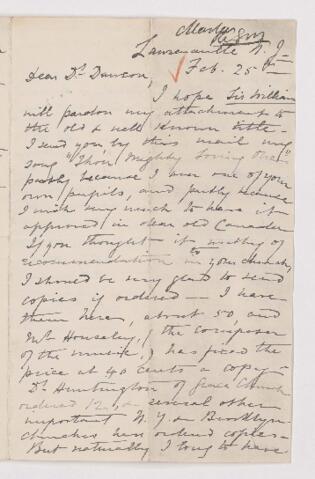 Lawrenceville N. J.
Feb. 25th
Dear Dr. Dawson,
I hope Sir William
will pardon my attachment to
the old & well known title.
I send you, by this mail my
song "Thou Mighty Loving One"
partly because I was one of your
own pupils, and partly because
I wish very much to have it
approved in dear old Canada.
If you thought it worthy of
recommendation in your
I should be very glad to send
copies if ordered — I have
them here, about 50, and
Mr. Houseley, (the composer
of the music,) has fixed the
price at 40 cents a copy —
Dr. Huntington of Grace Church
ordered 12, & several other
important N. Y. & Brooklyn
churches have ordered copies —
But naturally I long to have